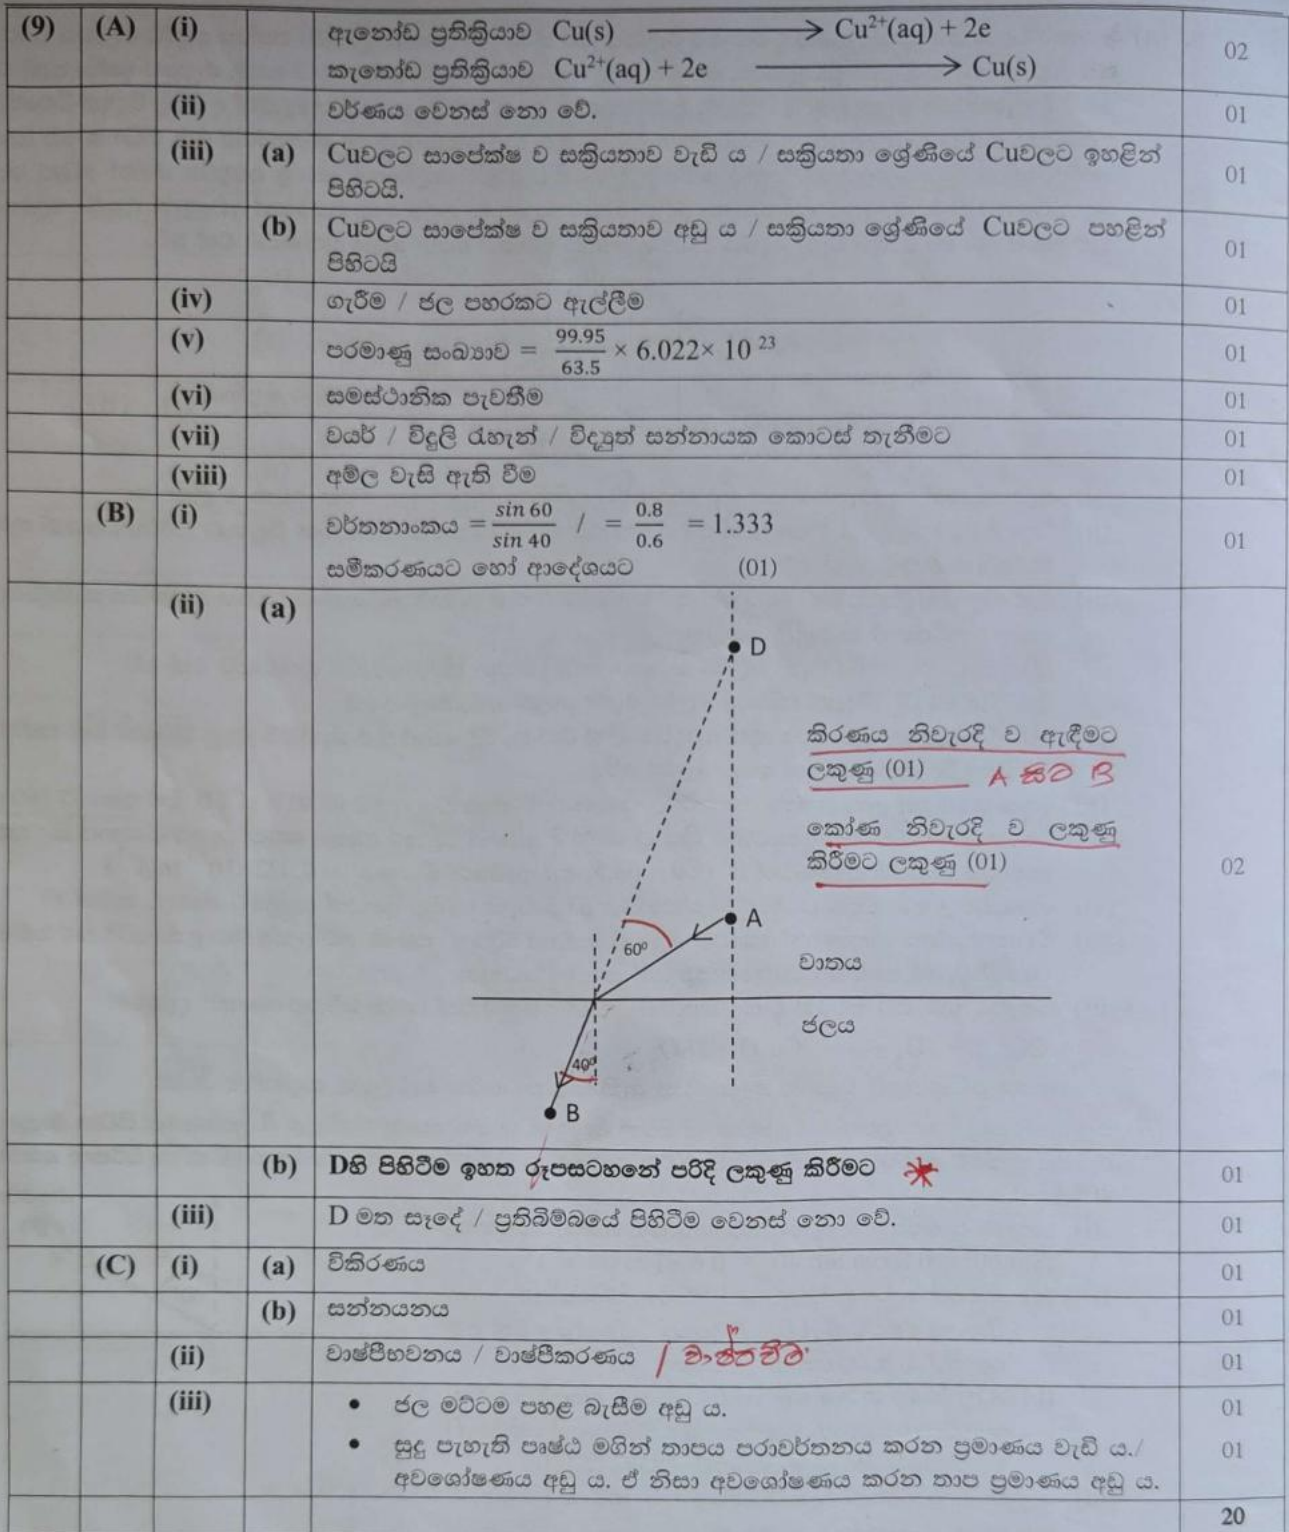 (9) (A) (i) ඇනෝඩ ප්‍රතික්‍රියාව Cu(s) ⟶ Cu²⁺(aq) + 2e
කැතෝඩ ප්‍රතික්‍රියාව Cu²⁺(aq) + 2e ⟶ Cu(s) 02
(ii) වර්ණය වෙනස් නො වේ. 01
(iii) (a) Cuවලට සාපේක්ෂ ව සක්‍රියතාව වැඩි ය / සක්‍රියතා ශ්‍රේණියේ Cuවලට ඉහළින්
පිහිටයි. 01
(b) Cuවලට සාපේක්ෂ ව සක්‍රියතාව අඩු ය / සක්‍රියතා ශ්‍රේණියේ Cuවලට පහළින්
පිහිටයි 01
(iv) ගැරීම / ජල පහරකට ඇල්ලීම 01
(v) පරමාණු සංඛ්‍යාව = 99.95/63.5 × 6.022× 10 ²³ 01
(vi) සමස්ථානික පැවතීම 01
(vii) වයර් / විදුලි රැහැන් / විද්‍යුත් සන්නායක කොටස් තැනීමට 01
(viii) අම්ල වැසි ඇති වීම 01
(B) (i) වර්තනාංකය = sin 60/sin 40 / = 0.8/0.6 = 1.333 01
සමීකරණයට හෝ ආදේශයට (01)
(ii) (a)
D
කිරණය නිවැරදි ව ඇඳීමට
ලකුණු (01) A සට B
කෝණ නිවැරදි ව ලකුණු
කිරීමට ලකුණු (01) 02
A
60⁰
වාතය
ජලය
40⁰
B
(b) Dහි පිහිටීම ඉහත රූපසටහනේ පරිදි ලකුණු කිරීමට 01
(iii) D මත සෑදේ / ප්‍රතිබිම්බයේ පිහිටීම වෙනස් නො වේ. 01
(C) (i) (a) විකිරණය 01
(b) සන්නයනය 01
(ii) වාෂ්පීභවනය / වාෂ්පීකරණය / 01
(iii) • ජල මට්ටම පහළ බැසීම අඩු ය. 01
• සුදු පැහැති පෘෂ්ඨ මගින් තාපය පරාවර්තනය කරන ප්‍රමාණය වැඩි ය./ 01
අවශෝෂණය අඩු ය. ඒ නිසා අවශෝෂණය කරන තාප ප්‍රමාණය අඩු ය.
20